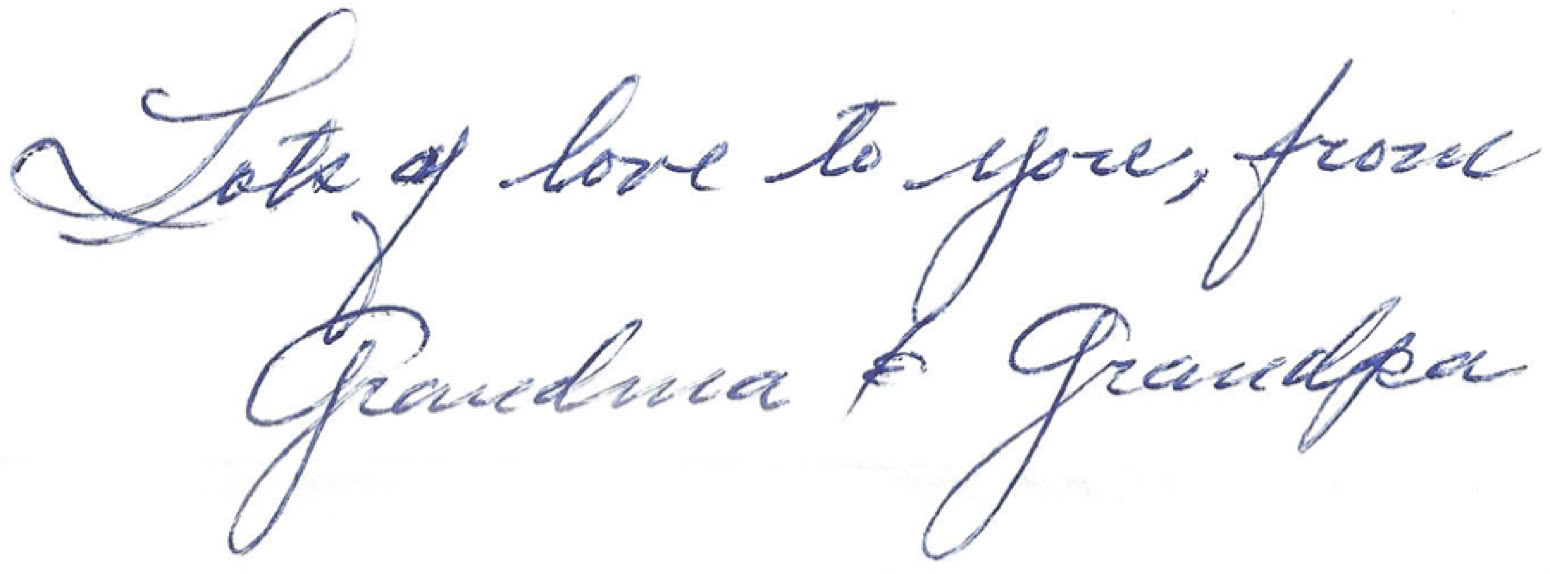 Lots of love to you, from
Grandma & Grandpa